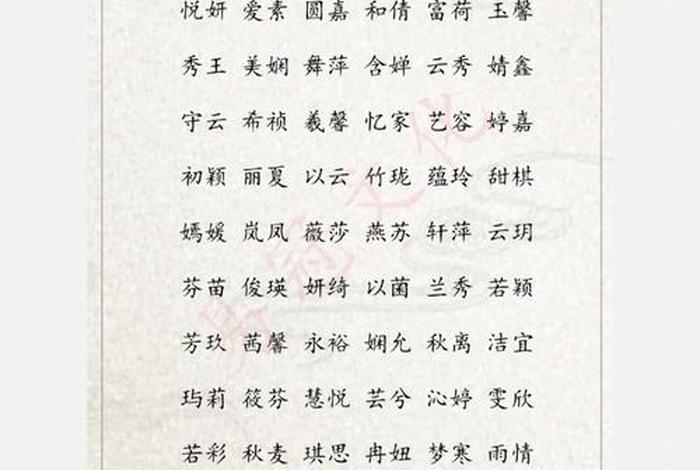 悦妍 爱素 圆嘉 和倩 富荷 玉馨
秀王 美娴 舞萍 含婵 云秀 婧鑫
守云 希祯 羲馨 忆家 艺容 婷嘉
初颖 丽夏 以云 竹珑 蕴玲 甜棋
嫣媛 岚凤 薇莎 燕苏 轩萍 云玥
芬苗 俊瑛 妍绮 以菌 兰秀 若颖
芳玖 茜馨 永裕 娴允 秋离 洁宜
玙莉 筱芬 慧悦 芸兮 沁婷 雯欣
若彩 秋麦 琪思 冉妞 梦寒 雨情